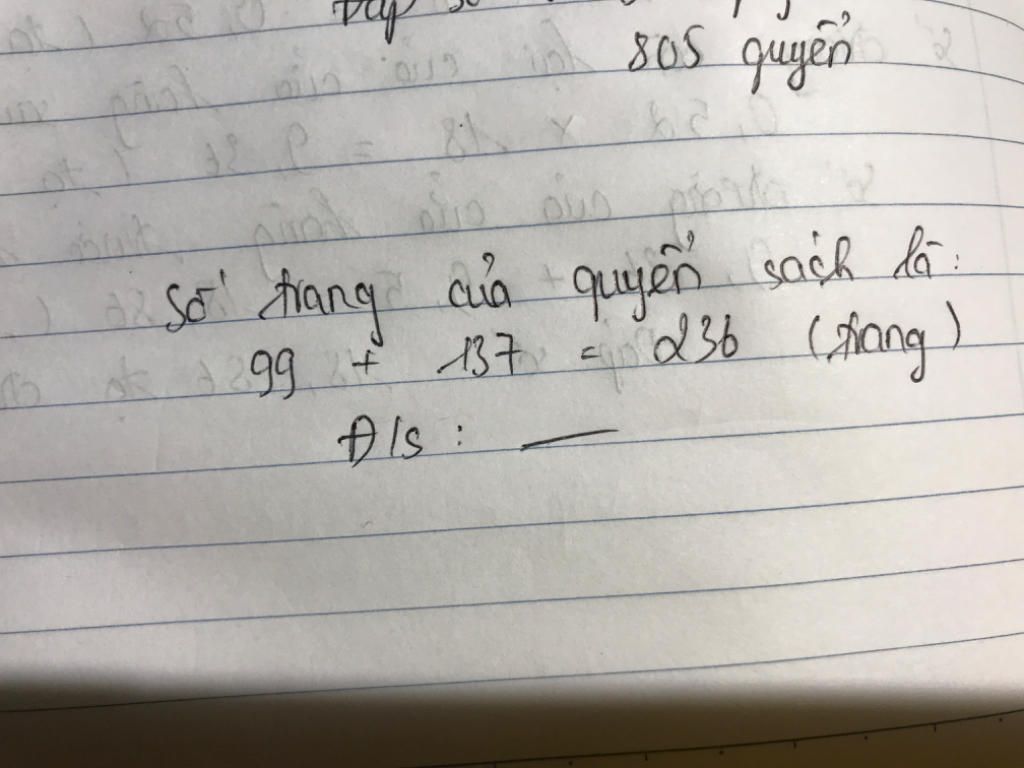 805 quyển
Số trang của quyển sách là:
99 + 137 = 236 (trang)
Đ/s: —